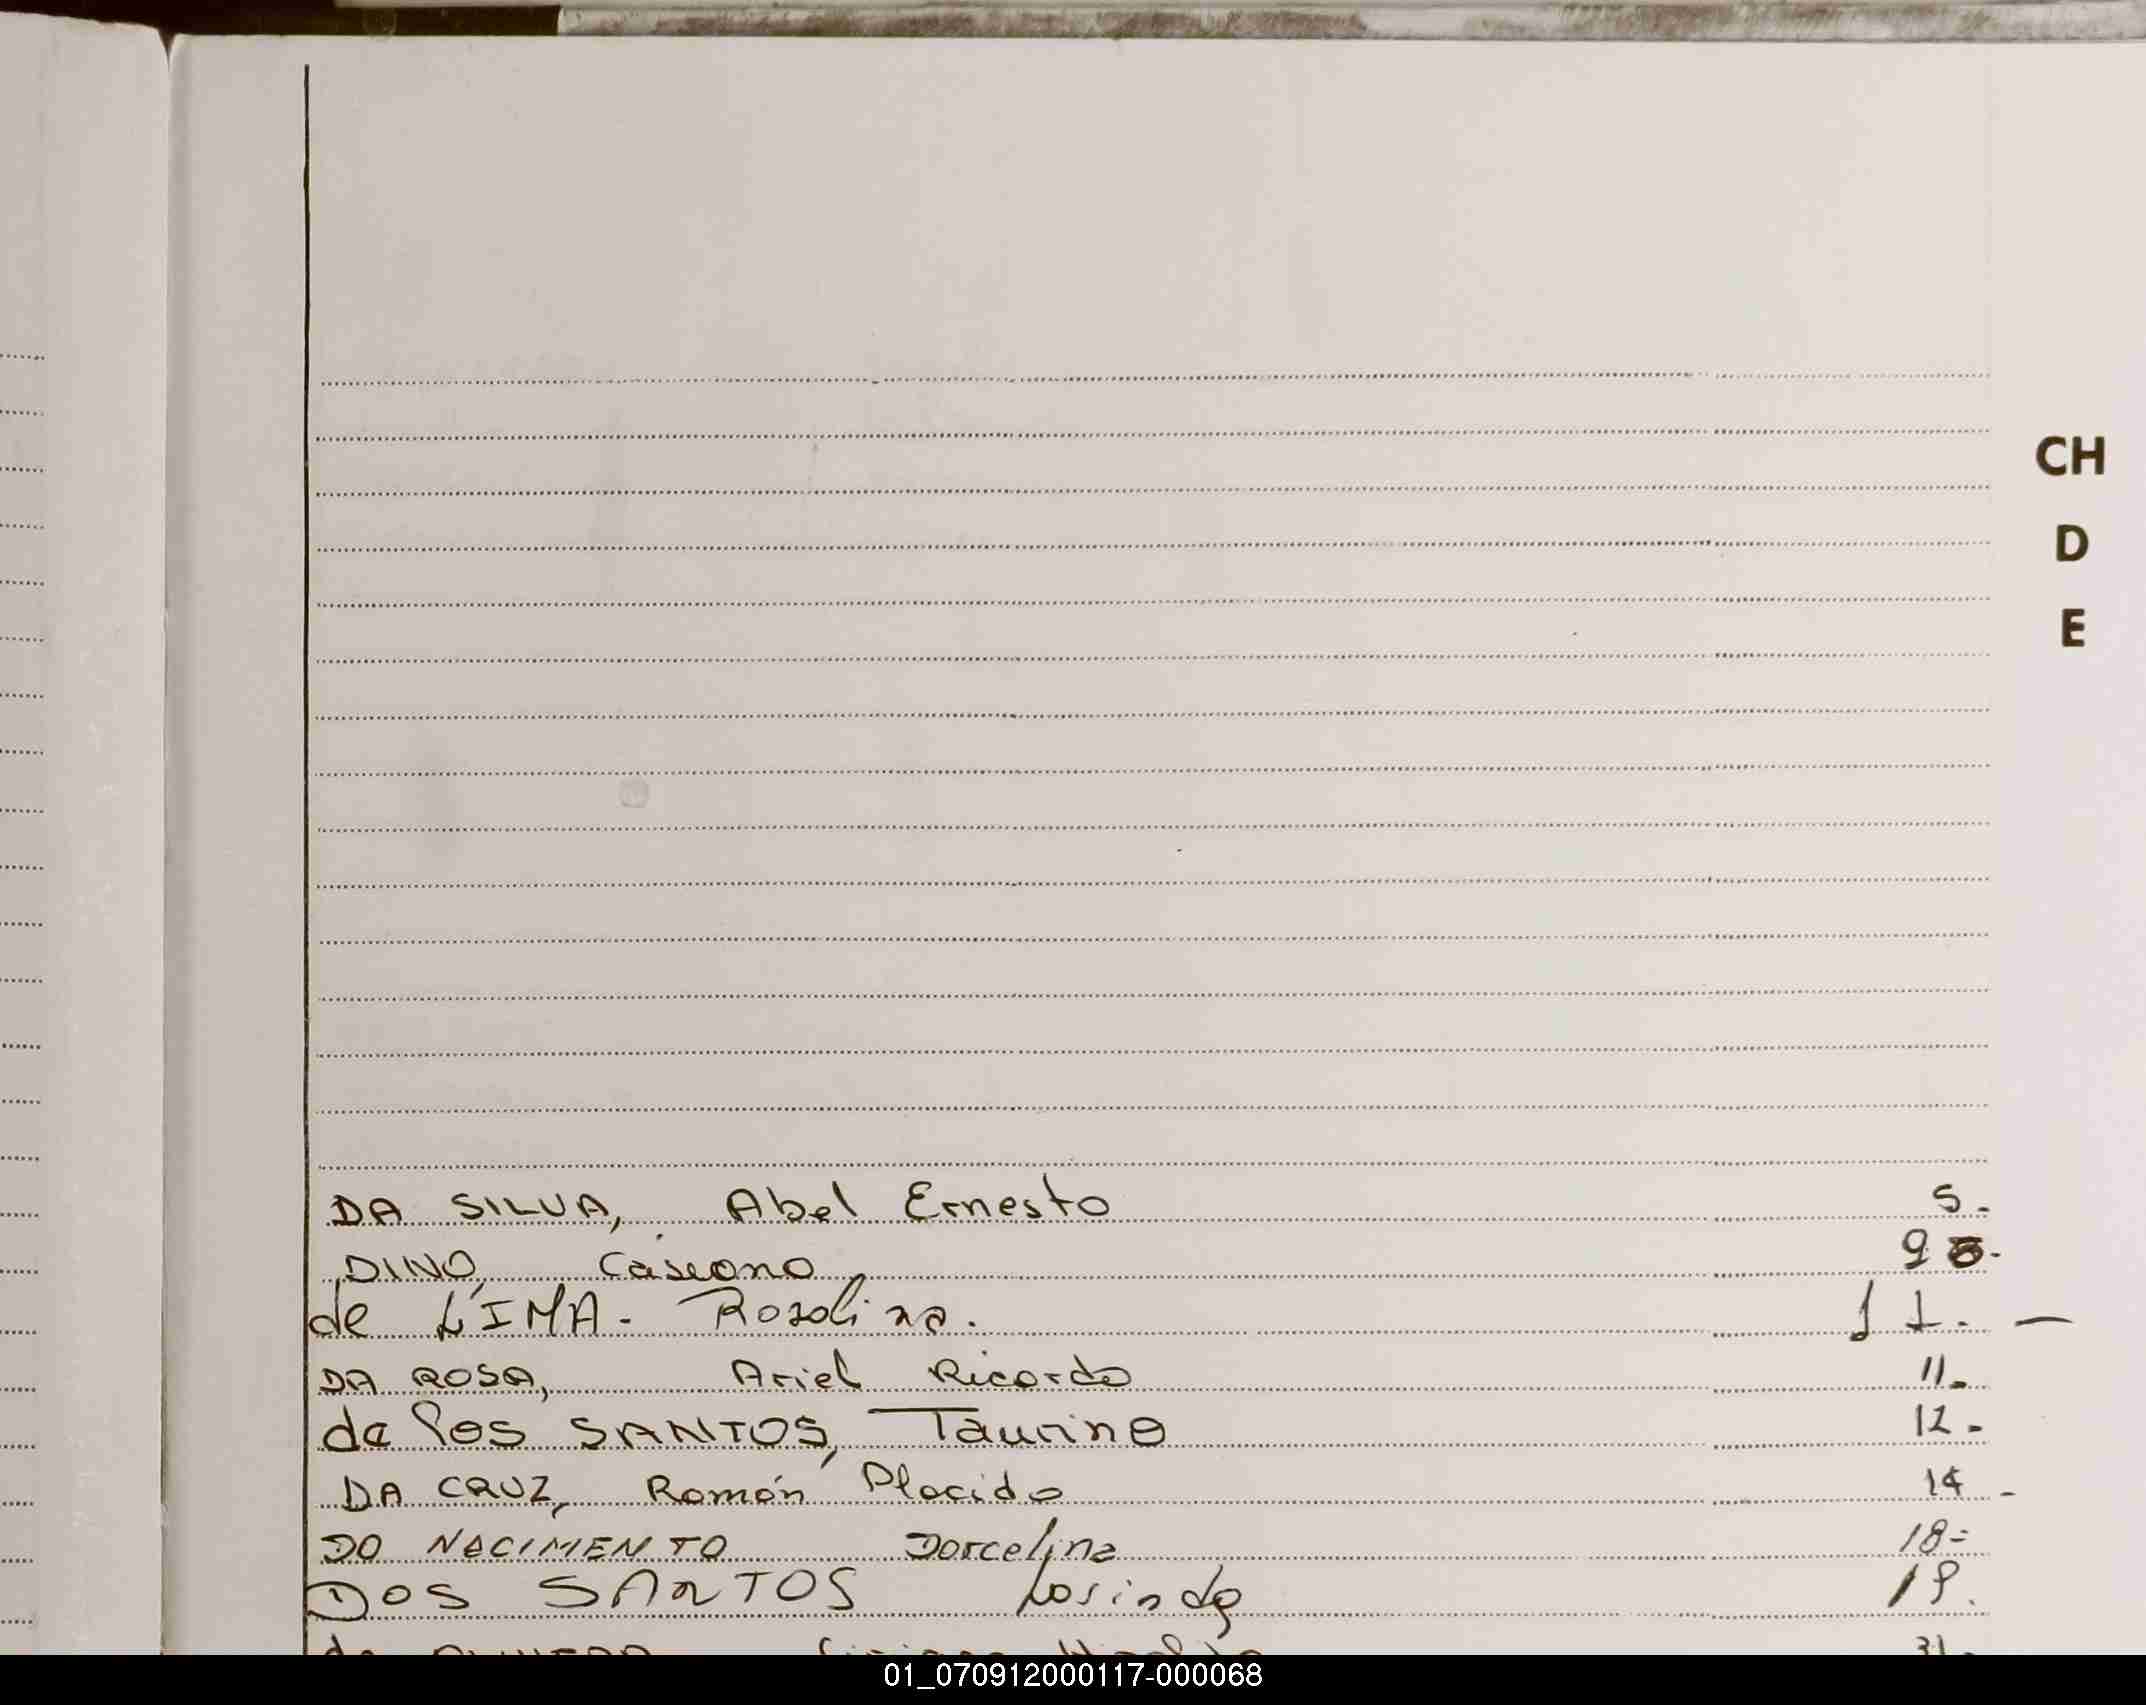 CH
D
E
DA SILVA, Abel Ernesto 5.
DINO, 9
de LIMA. Rosolina. 11. —
DA ROSA, Ariel Ricardo 11.
de los SANTOS, Taurino 12.
DA CRUZ, Román Placido 14.
DO NACIMENTO Dorcelina 18=
DOS SANTOS 19.
31.
01_070912000117-000068